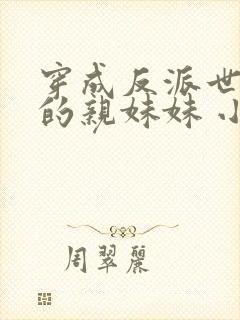 穿成反派世
的亲妹妹 小
周翠丽